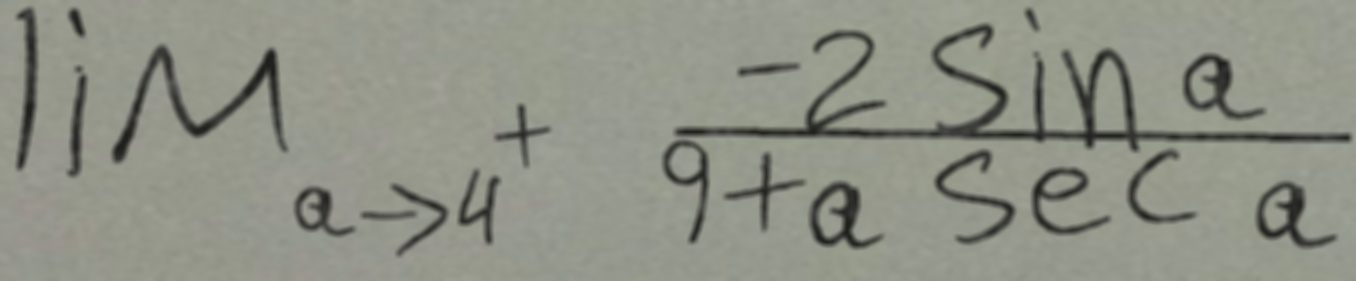 \lim_{a \to 4^+} \frac{-2 \sin a}{9 + a \sec a}